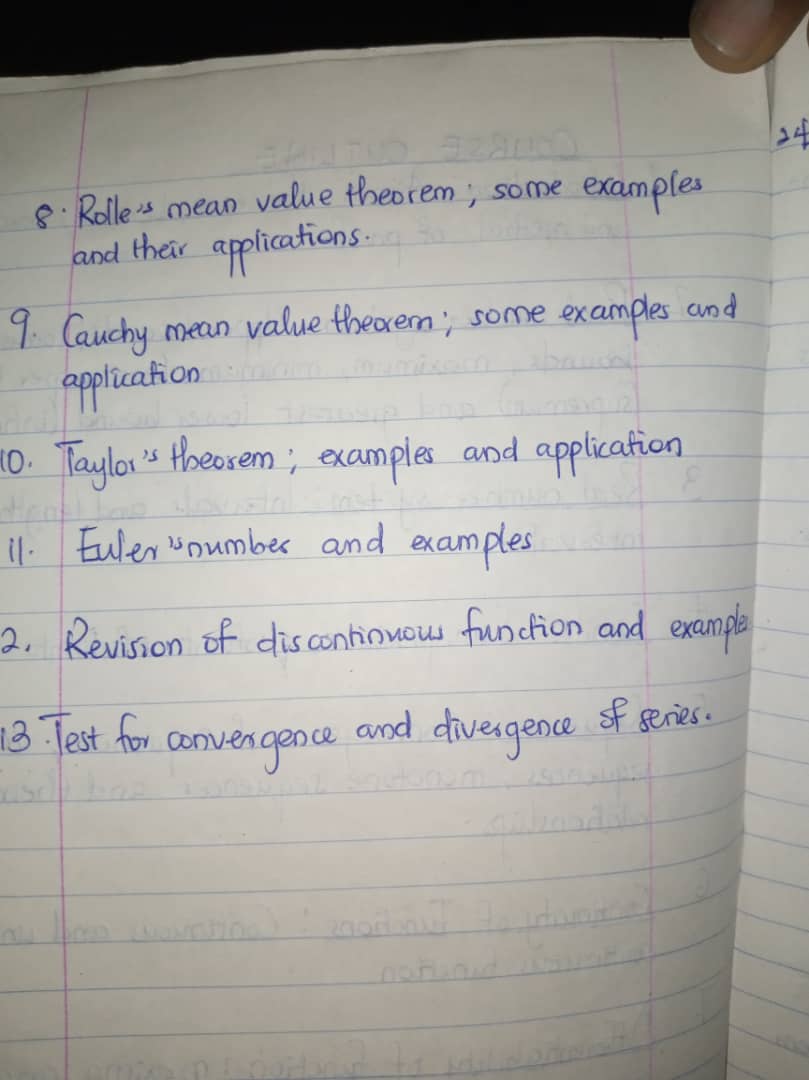 24
8. Rolle's mean value theorem; some examples
and their applications.
9. Cauchy mean value theorem; some examples and
application
10. Taylor's theorem; examples and application
11. Euler's number and examples
2. Revision of discontinuous function and example
13. Test for convergence and divergence of series.